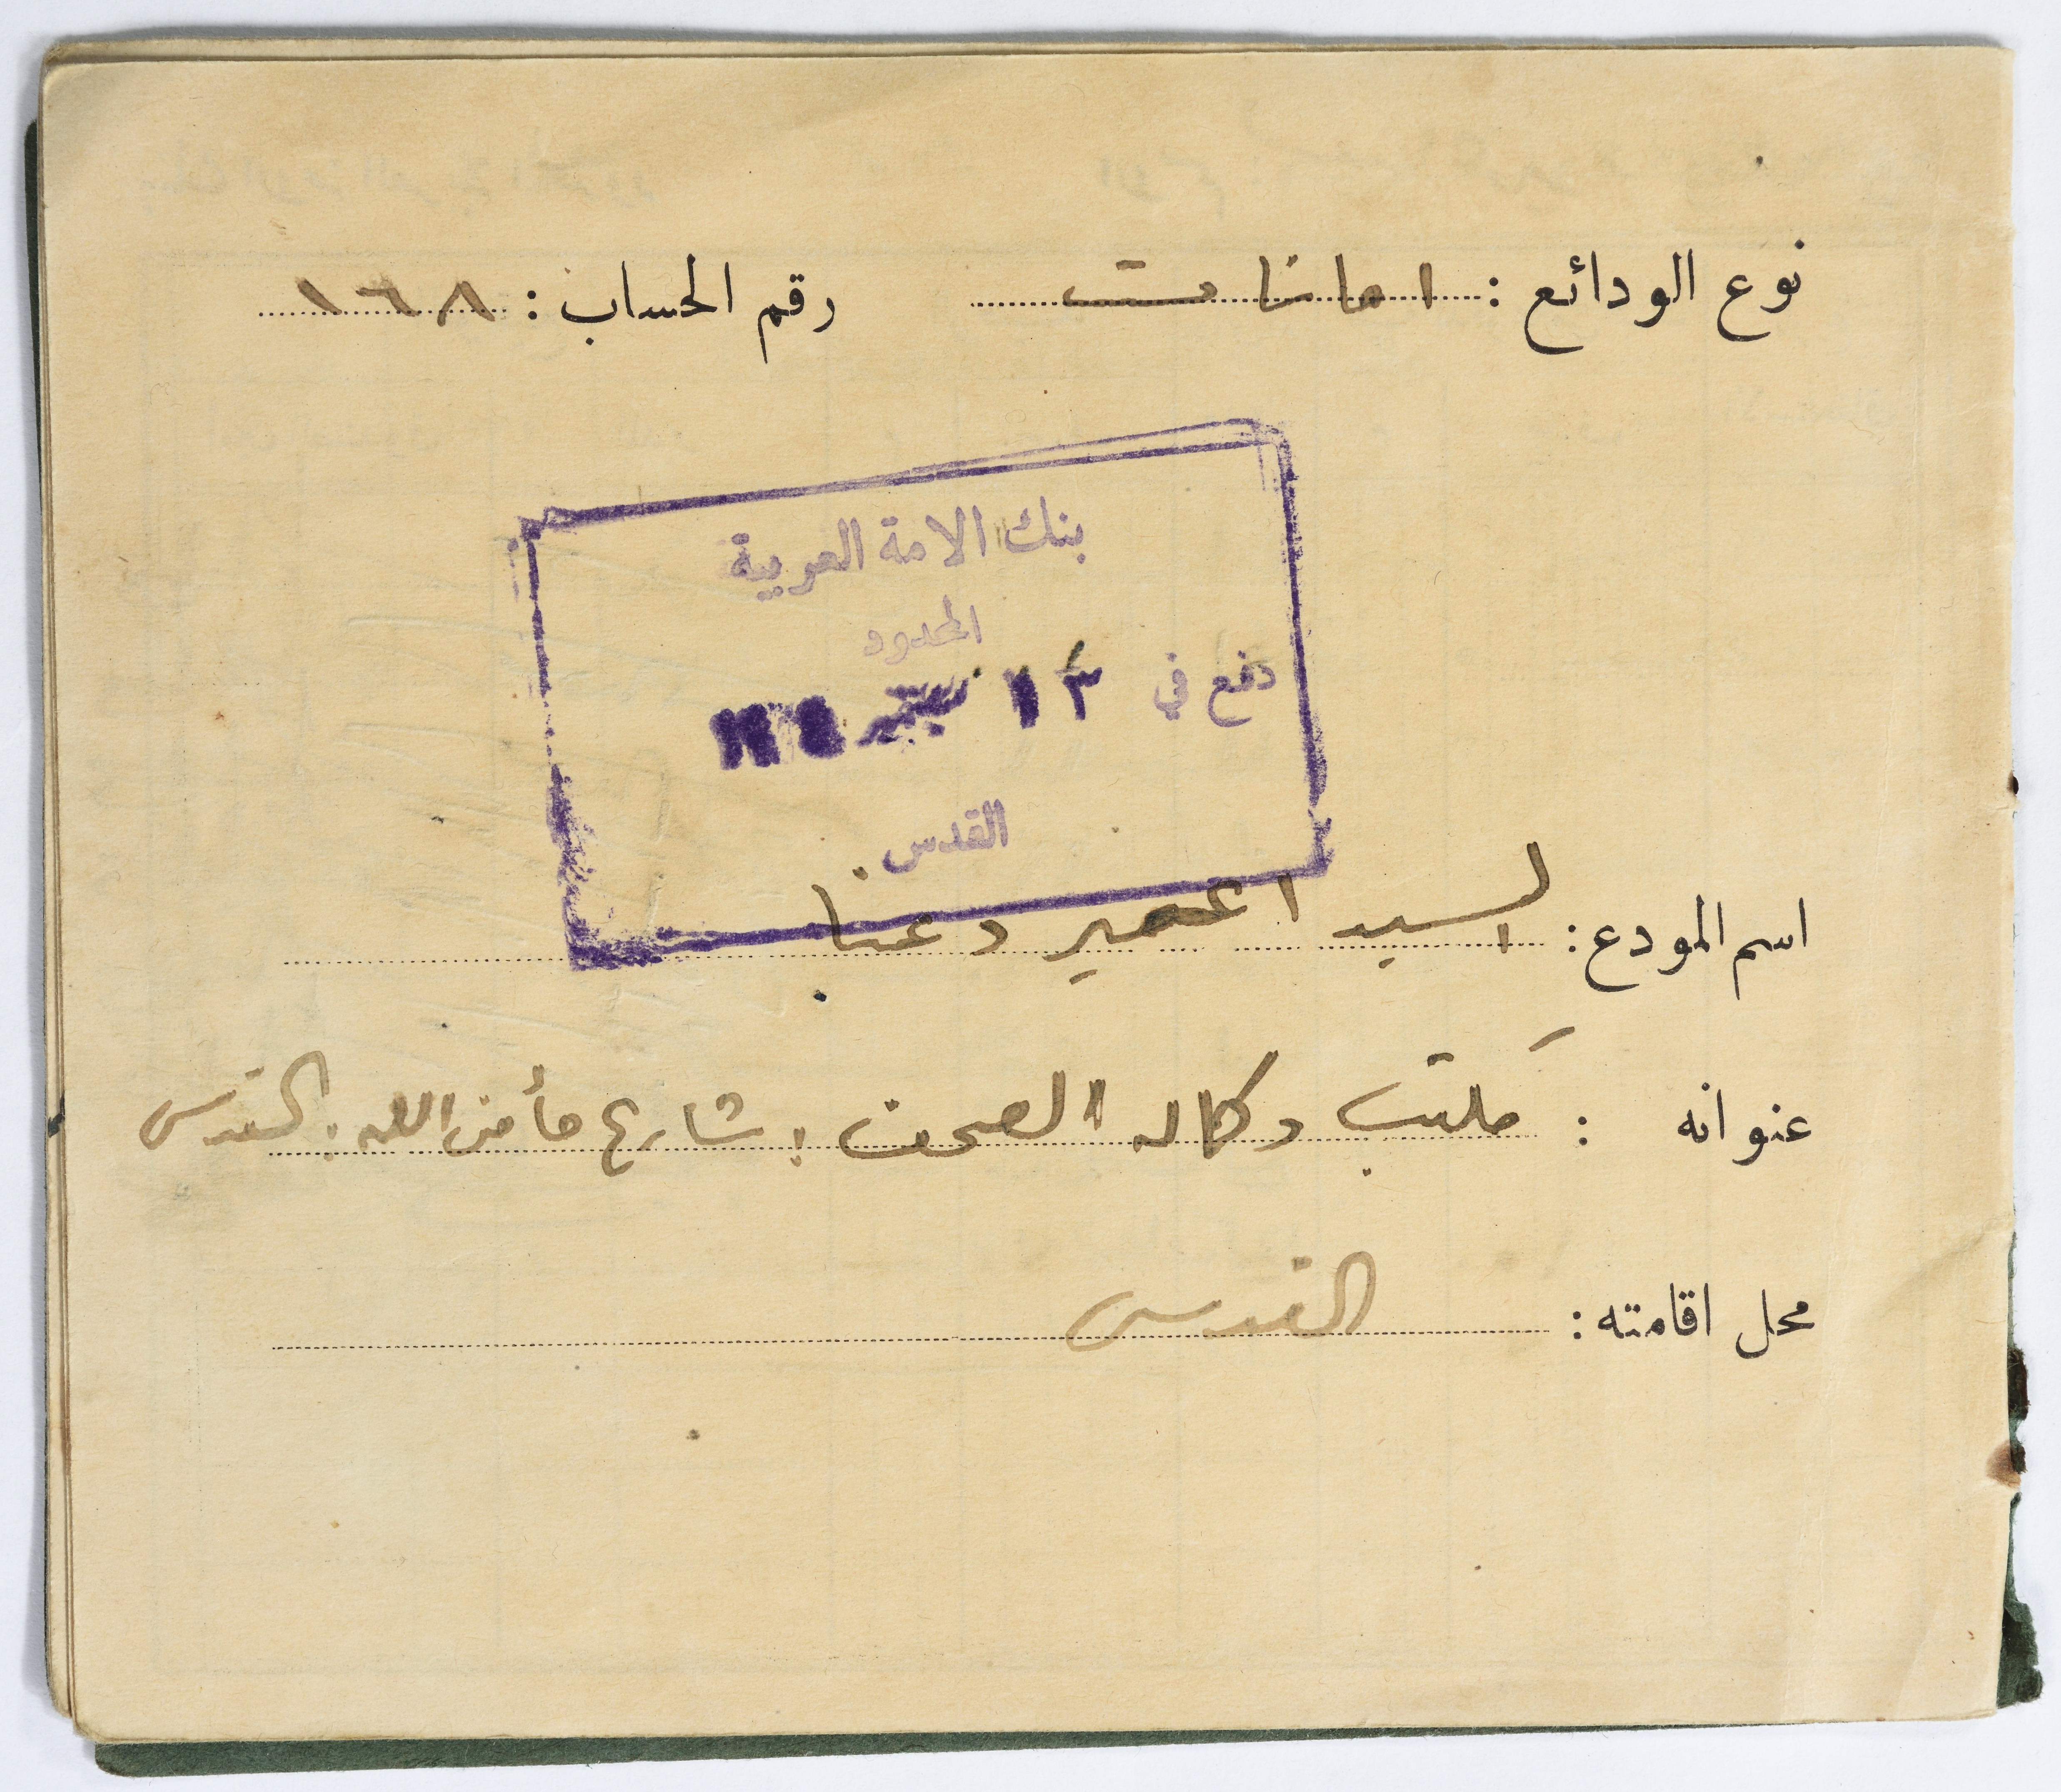 نوع الودائع : امانات رقم الحساب : ١٦٨
بنك الامة العربية
المحدود
دفع في ١٣ سبتمبر
القدس
اسم المودع : السيد دعنا
عنوانه : مكتب وكاله الصحف : شارع مأمن الله : القدس
محل اقامته : القدس